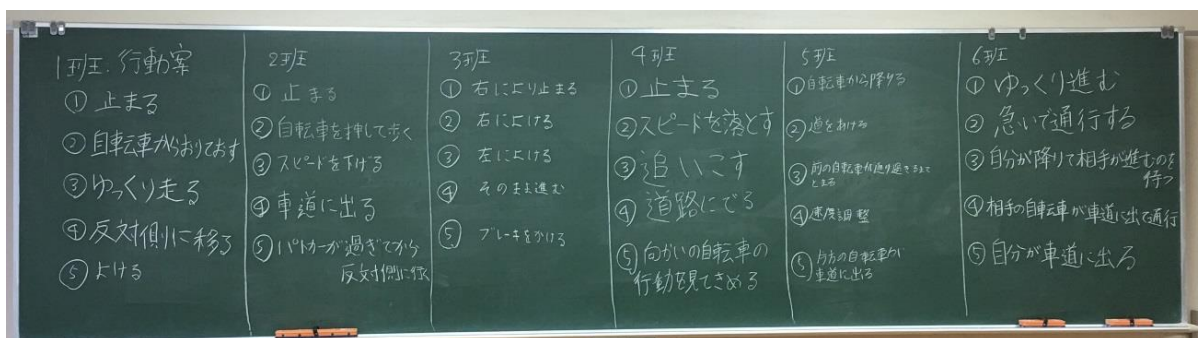 1班. 行動案
① 止まる
② 自転車からおりておす
③ ゆっくり走る
④ 反対側に移る
⑤ よける
2班
① 止まる
② 自転車を押して歩く
③ スピードを下げる
④ 車道に出る
⑤ パトカーが過ぎてから
反対側に行く
3班
① 右により止まる
② 右によける
③ 左によける
④ そのまま進む
⑤ ブレーキをかける
4班
① 止まる
② スピードを落とす
③ 追いこす
④ 道路にでる
⑤ 向かいの自転車の
行動を見てきめる
5班
① 自転車から降りる
② 道をあける
③ 前の自転車が通り過ぎるまで
とまる
④ 速度調整
⑤ 片方の自転車が
車道に出る
6班
① ゆっくり進む
② 急いで通行する
③ 自分が降りて相手が進むのを
待つ
④ 相手の自転車が車道に出て通行
⑤ 自分が車道に出る